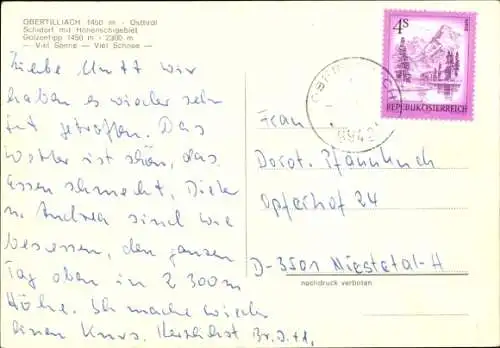 OBERTILLIACH 1450 m - Osttirol
Schidorf mit Höhenschigebiet
Golzentipp 1450 m - 2300 m
— Viel Sonne — Viel Schnee —
4S
REPUBLIK ÖSTERREICH
9942
Liebe Mutti wir
haben es wieder sehr
gut getroffen. Das
Wetter ist schön, das
Essen schmeckt. Dieter
u. Andrea sind wie
besessen, den ganzen
Tag oben in 2300m
Höhe. Ich mache wieder
einen Kurs. Herzlichst
Frau
Dorot. Pfannkuch
Opferhof 24
D-3501 Niestetal-H
nachdruck verboten